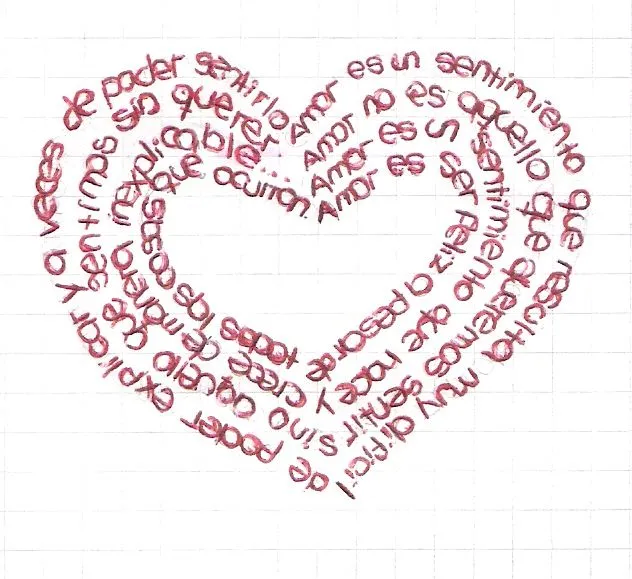 Amor es un sentimiento que resulta muy dificil de poder explicar y a veces de poder sentirlo
Amor no es aquello que queremos sentir sino aquello que sentimos sin querer
Amor es un sentimiento que nace y crece de manera inexplicable...
Amor es ser feliz a pesar de todas las cosas que ocurran.